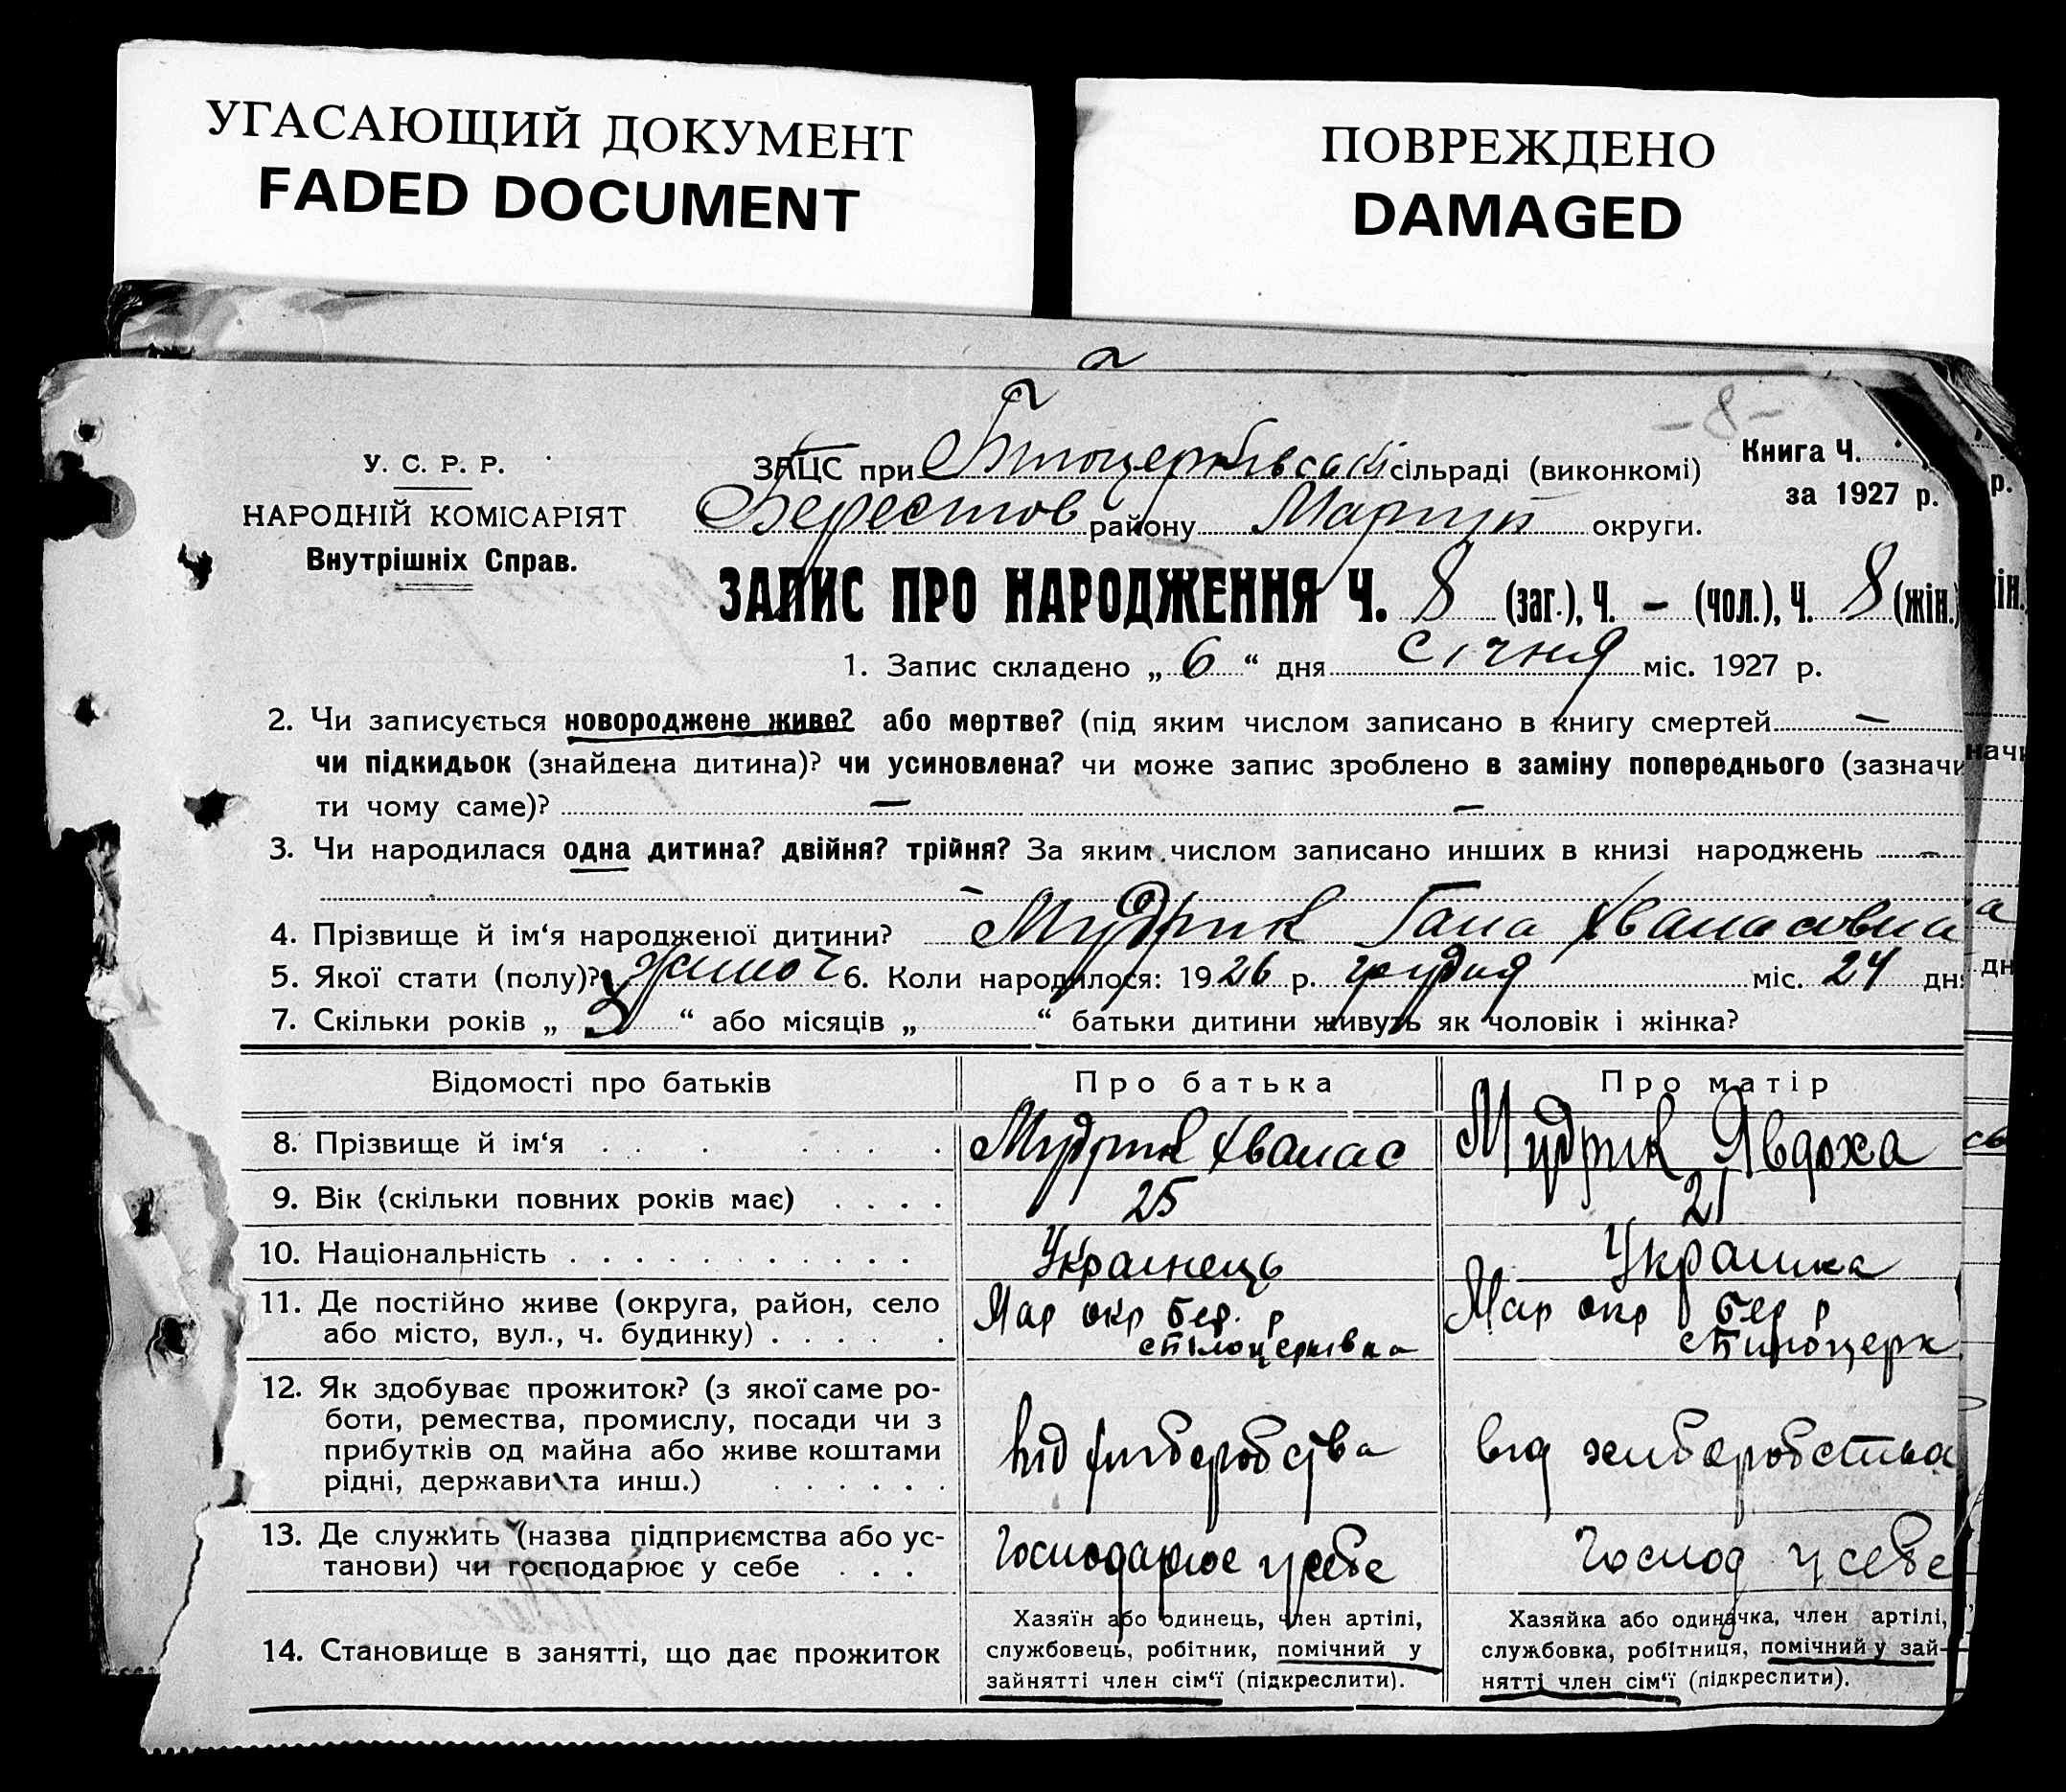 УГАСАЮЩИЙ ДОКУМЕНТ
FADED DOCUMENT
ПОВРЕЖДЕНО
DAMAGED
-8-
У. С. Р. Р.
НАРОДНІЙ КОМІСАРІЯТ
Внутрішніх Справ.
ЗАЦС при сільраді (виконкомі)
Книга Ч.
за 1927 р.
Берестов району Маріуп округи.
ЗАПИС ПРО НАРОДЖЕННЯ Ч. 8 (заг.), Ч. - (чол.), Ч. 8 (жін.)
1. Запис складено „ 6 “ дня січня міс. 1927 р.
2. Чи записується новороджене живе? або мертве? (під яким числом записано в книгу смертей —
чи підкидьок (знайдена дитина)? чи усиновлена? чи може запис зроблено в заміну попереднього (зазначи
ти чому саме)? — —
3. Чи народилася одна дитина? двійня? трійня? За яким числом записано инших в книзі народжень —
4. Прізвище й ім‘я народженої дитини? Мудрик Гана
5. Якої стати (полу)? жіноч 6. Коли народилося: 1926 р. грудня міс. 24 дн
7. Скільки років „ 3 “ або місяців „ “ батьки дитини живуть як чоловік і жінка?
Відомості про батьків Про батька Про матір
8. Прізвище й ім‘я Мудрик Хванас Мудрик Явдоха
9. Вік (скільки повних років має) 25 21
10. Національність Украінець Украінка
11. Де постійно живе (округа, район, село Мар окр Бер. р Мар окр Бер р
або місто, вул., ч. будинку) с Білоцерківка с Білоцерк
12. Як здобуває прожиток? (з якої саме ро-
боти, ремества, промислу, посади чи з
прибутків од майна або живе коштами
рідні, держави та инш.)
від хліборобства від хліборобства
13. Де служить (назва підприємства або ус-
танови) чи господарює у себе
Господарює у себе Господ у себе
14. Становище в занятті, що дає прожиток
Хазяїн або одинець, член артілі,
службовець, робітник, помічний у
зайнятті член сім‘ї (підкреслити).
Хазяйка або одиначка, член артілі,
службовка, робітниця, помічний у зай-
нятті член сім‘ї (підкреслити).